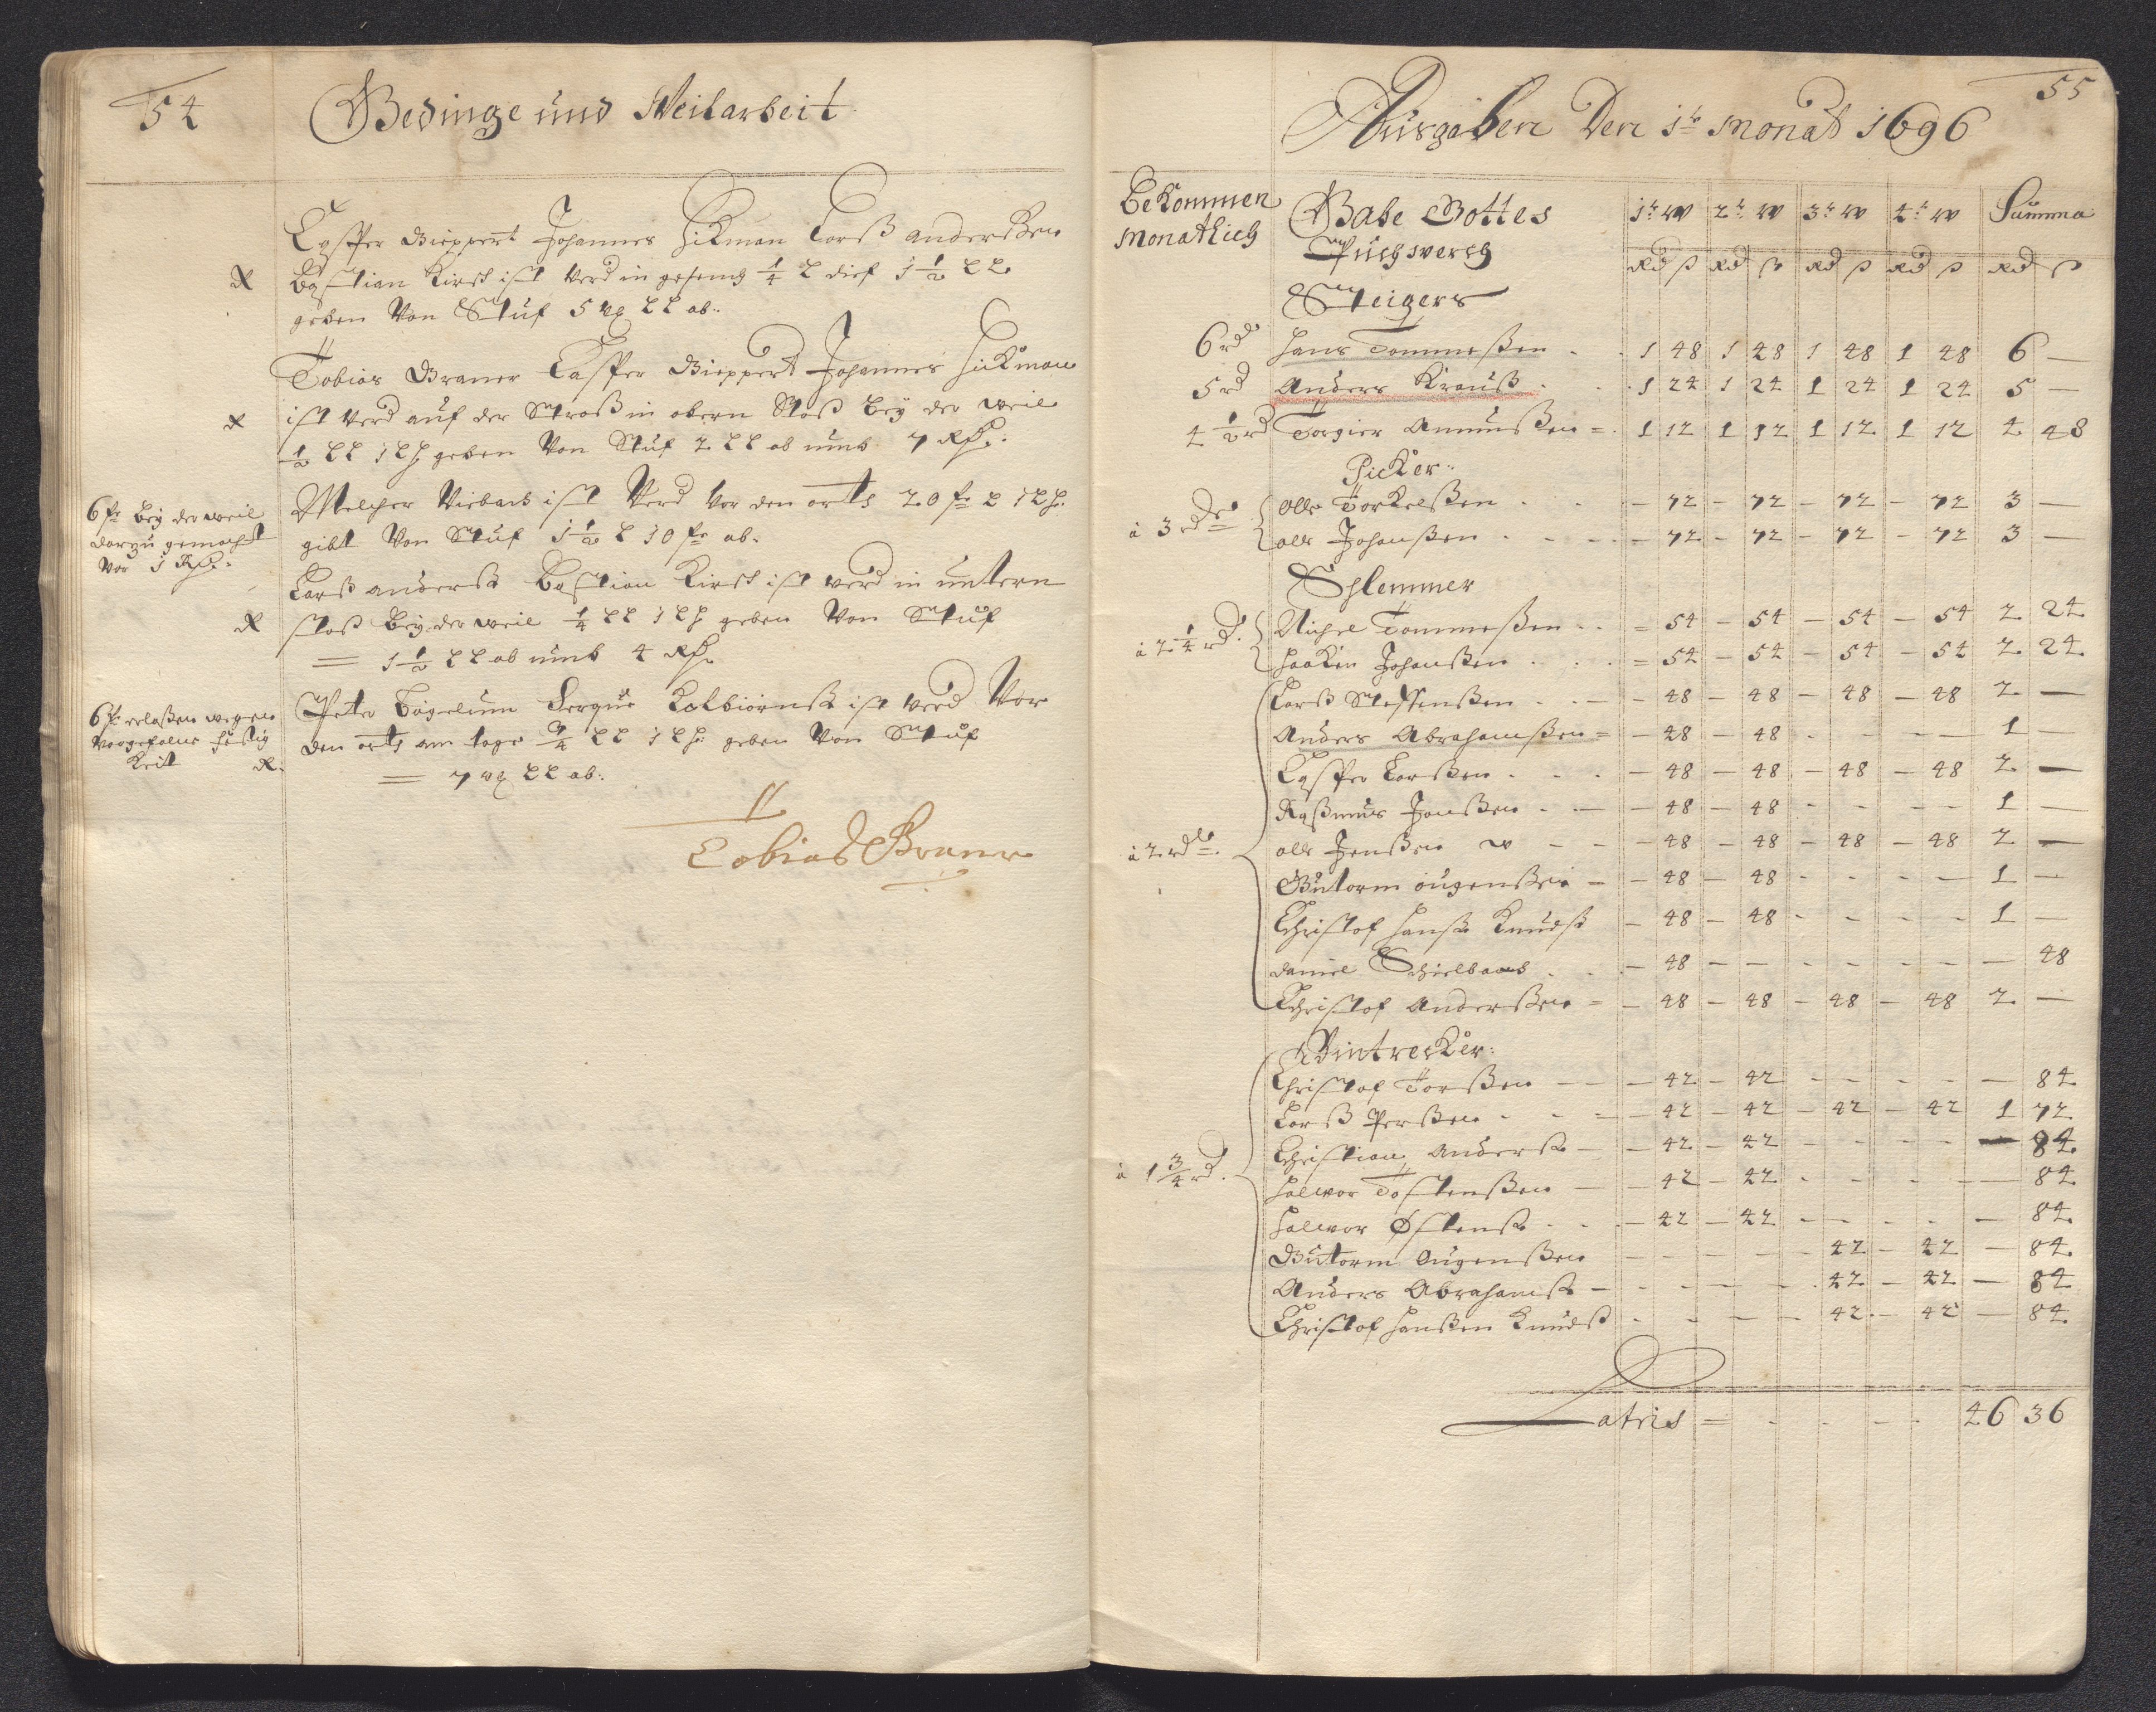 54
Bedinge und Weilarbeit
Casper Bieppert Johannes Hikman Larß Anderßen
R Bastian Kirst ist Verd in geseng 1/4 L dief 1 1/2 LL
geben Von Stuf 5 LL ab.
Tobias Braner Casper Bieppert Johannes Hikman
R ist Verd auf der Stroß in obern Stoß bey der weil
1/2 LL 1 L geben Von Stuf 2 LL ab umb 7 R
6 f bey der weil
darzu gemacht
vor 1 R
Melcher Viebach ist Verd vor den orts 20 f L 1 L
gibt Von Stuf 1 1/2 L 10 f ab.
Larß Anderß Bastian Kirst ist verd in untern
R stoß bey der weil 1/4 LL 1 L geben Von Stuf
= 1 1/2 LL ab umb 4 R
6 f erlaßen wegen
Vorgefalne
Keit R.
Peter Bögelum Kolbiörnß ist verd Vor
den orts am tage 3/4 LL 1 L geben Von Stuf
= 7 LL ab.
Tobias Braner
55
Ausgaben Den 1t Monat 1696
Bekommen Monatlich
Gabe Gottes
Puchwerch
1t W 2t W 3t W 4t W Summa
Rd ß Rd ß Rd ß Rd ß Rd ß
Steigers
6 rd Hans Tommeßen 1 48 1 48 1 48 1 48 6 —
5 rd Anders Krauß 1 24 1 24 1 24 1 24 5 —
4 1/2 rd Torgier Amunßen 1 12 1 12 1 12 1 12 4 48
Picker
à 3 rdr Olle Torkelßen — 72 — 72 — 72 — 72 3 —
Olle Johanßen — 72 — 72 — 72 — 72 3 —
Schlemmer
à 2 1/4 rd. Michel Tommeßen — 54 — 54 — 54 — 54 2 24
Haaken Johanßen — 54 — 54 — 54 — 54 2 24
à 2 rdr. Larß Steffenßen — 48 — 48 — 48 — 48 2 —
Anders Abrahamßen — 48 — 48 - - - - 1 —
Casper Larßen — 48 — 48 — 48 — 48 2 —
Raßmus Jonßen — 48 — 48 - - - - 1 —
Olle Jenßen — 48 — 48 — 48 — 48 2 —
Gutorm Ougenßen — 48 — 48 - - - - 1 —
Christof Hanß Knudß — 48 — 48 - - - - 1 —
Daniel Schielbaus — 48 - - - - - - — 48
Christof Anderßen — 48 — 48 — 48 — 48 2 —
Wintrecker
à 1 3/4 rd. Christof Torßen — 42 — 42 - - - - — 84
Larß Perßen — 42 — 42 — 42 — 42 1 72
Christian Anderß — 42 — 42 - - - - — 84
Halvor Tostenßen — 42 — 42 - - - - — 84
Halvor Østenß — 42 — 42 - - - - — 84
Gutorm Ougenßen - - - - — 42 — 42 — 84
Anders Abrahamß - - - - — 42 — 42 — 84
Christof Hanßen Knudß - - - - — 42 — 42 — 84
Latris 46 36